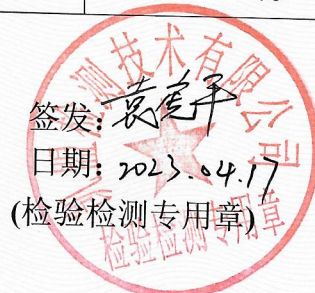 测技术有限公司
签发:袁
日期:2023.04.17
(检验检测专用章)
检验检测专用章